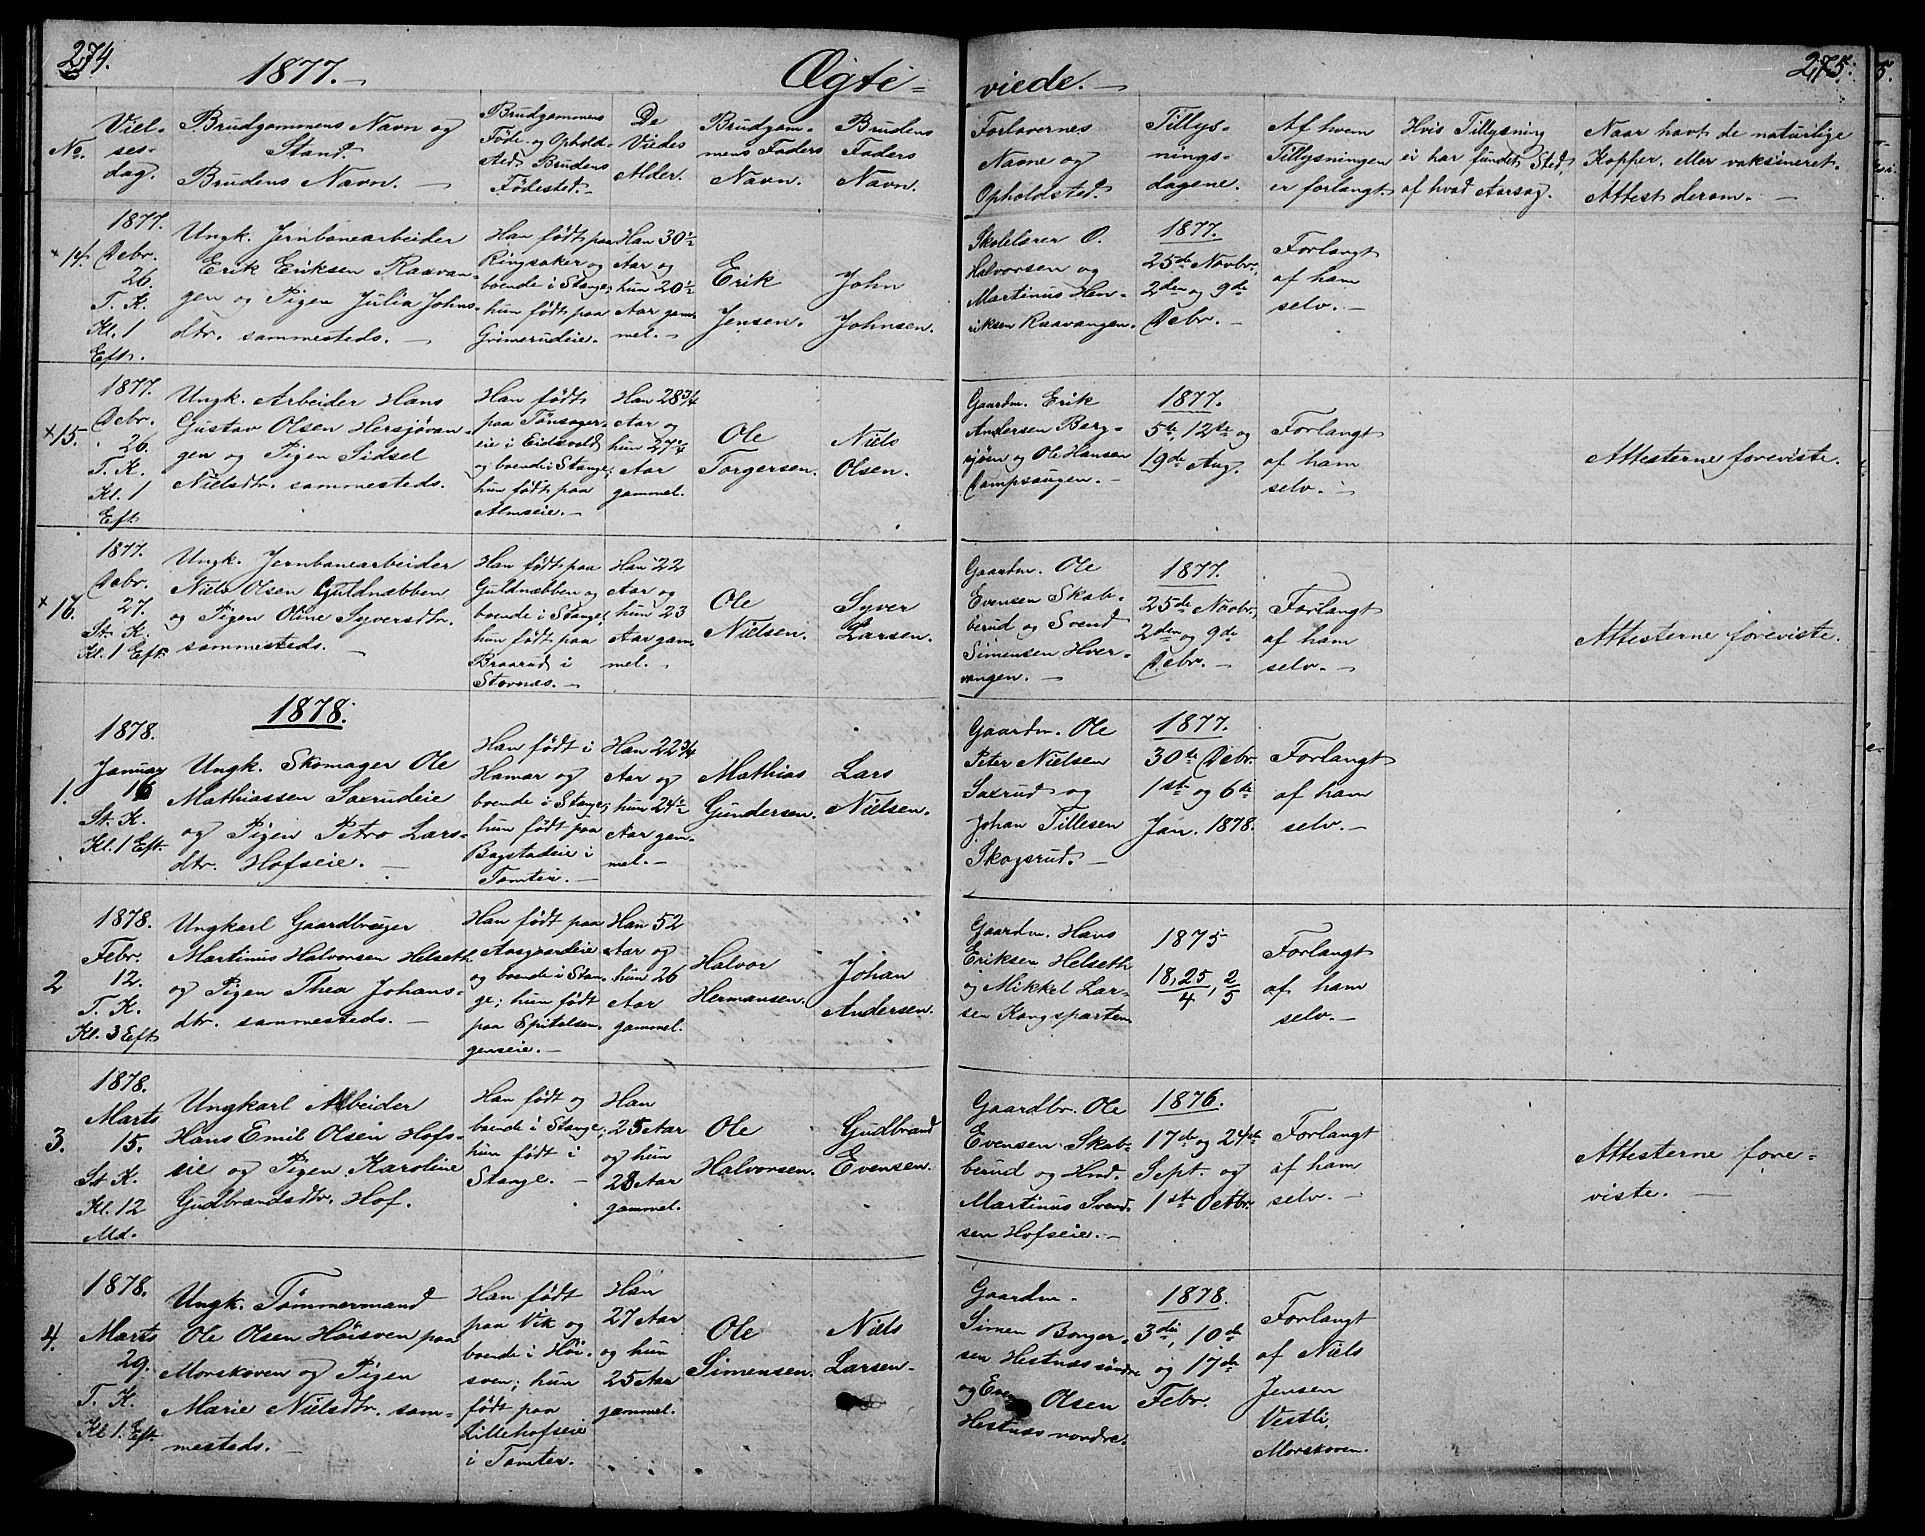 274.
1877.
Ægte-
No.
Viel-
ses-
dag.
Brudgommens Navn og
Stand.
Brudens Navn.
Brudgommens
Føde- og Opholds-
sted. Brudens
Fødested.
De
Viedes
Alder.
Brudgom-
mens Faders
Navn.
Brudens
Faders
Navn.
14.
1877.
Debr.
26.
T. K.
Kl. 1
Eft.
Ungk. Jernbanearbeider
Erik Eriksen Raavan-
gen og Pigen Julia Johns-
dtr. sammesteds.
Han født paa
Ringsaker og
boende i Stange;
hun født paa
Grimerudeie.
Han 30½
Aar og
hun 20½
Aar gam-
mel.
Erik
Jensen.
John
Johnsen.
15.
1877.
Debr.
26.
T. K.
Kl. 1
Eft.
Ungk. Arbeider Hans
Gustav Olsen Hersjøvan-
gen og Pigen Sidsel
Nielsdtr. sammesteds.
Han født
paa Tønsager-
eie i Eidsvold
og boende i Stange;
hun født paa
Almseie.
Han 28¾
Aar og
hun 27¾
Aar
gammel.
Ole
Torgersen.
Niels
Olsen.
16.
1877.
Debr.
27.
St. K.
Kl. 1 Eft.
Ungk. Jernbanearbeider
Niels Olsen Guldnæbben
og Pigen Oline Syversdtr.
sammesteds.
Han født paa
Guldnæbben og
boende i Stange;
hun født paa
Braarud i
Stornæs.
Han 22
Aar og
hun 23
Aar gam-
mel.
Ole
Nielsen.
Syver
Larsen.
1878.
1.
1878.
Januar
16
St. K.
Kl. 1 Eft.
Ungk. Skomager Ole
Mathiassen Saxrudeie
og Pigen Petro Lars-
dtr. Hofseie.
Han født i
Hamar og
boende i Stange;
hun født paa
Bagstadeie i
Tomter.
Han 22¾
Aar og
hun 24½
Aar gam-
mel.
Mathias
Gundersen.
Lars
Nielsen.
2
1878.
Febr.
12.
T. K.
Kl. 3 Eft
Ungkarl Gaardbruger
Martinus Halvorsen Helseth
og Pigen Thea Johans-
dtr. sammesteds.
Han født paa
Aasgaardeie
og boende i Stan-
ge; hun født
paa Spitalsen-
genseie.
Han 52
Aar og
hun 26
Aar
gammel.
Halvor
Hermansen.
Johan
Andersen.
3.
1878.
Marts
15.
St. K.
Kl. 12
Md.
Ungkarl Arbeider
Hans Emil Olsen Hofs-
eie og Pigen Karoline
Gudbrandsdtr. Hof.
Han født og
boende i Stange;
hun født i
Stange.
Han
25 Aar
og hun
28 Aar
gammel.
Ole
Halvorsen.
Gudbrand
Evensen.
4.
1878.
Marts
29.
T. K.
Kl 1. Eft.
Ungk. Tømmermand
Ole Olsen Høisveen paa
Morskoven og Pigen
Marie Nielsdtr. sam-
mesteds.
Han født
paa Vik og
boende i Høi-
sven; hun
født paa
Lillehofseie
i Tomter.
Han
27 Aar
og hun
25 Aar
gammel.
Ole
Simensen.
Niels
Larsen.
275.
viede.
Forlovernes
Navne og
Opholdsted.
Tillys-
nings-
dagene.
Af hvem
Tillysningen
er forlangt.
Hvis Tillysning
ei har fundet Sted,
af hvad Aarsag.
Naar havt de naturlige
Kopper, eller vaksineret.
Attest derom.
Skolelærer O.
Halvorsen og
Martinus Hen-
riksen Raavangen.
1877.
25de Novbr.,
2den og 9de
Debr.
Forlangt
af ham
selv.
Gaardm. Erik
Andersen Berg-
sjøen og Ole Hansen
Dampsaugen.
1877.
5te, 12te og
19de Aug.
Forlangt
af ham
selv.
Attesterne foreviste.
Gaardm. Ole
Evensen Skab-
berud og Svend
Simensen Hver-
vangen.
1877.
25de Novbr.,
2den og 9de
Debr.
Forlangt
af ham
selv.
Attesterne foreviste.
Gaardm. Ole
Peter Nielsen
Saxrud og
Johan Tillesen
Skogsrud.
1877.
30te Debr.
1ste og 6te
Jan. 1878.
Forlangt
af ham
selv.
Gaardm. Hans
Eriksen Helseth
og Mikkel Lar-
sen Kongsparten
1875
18, 25/4, 2/5
Forlangt
af ham
selv.
Gaardbr. Ole
Evensen Skab-
berud og Hmd.
Martinus Svend-
sen Hofseie.
1876.
17de og 24de
Sept. og
1ste Octbr.
Forlangt
af ham
selv.
Attesterne fore-
viste.
Gaardm.
Simen Borger-
sen Hestnæs søndre
og Even Olsen
Hestnæs nordre.
1878.
3die, 10de
og 17de
Febr.
Forlangt
af Niels
Jensen
Vestli,
Morskoven.